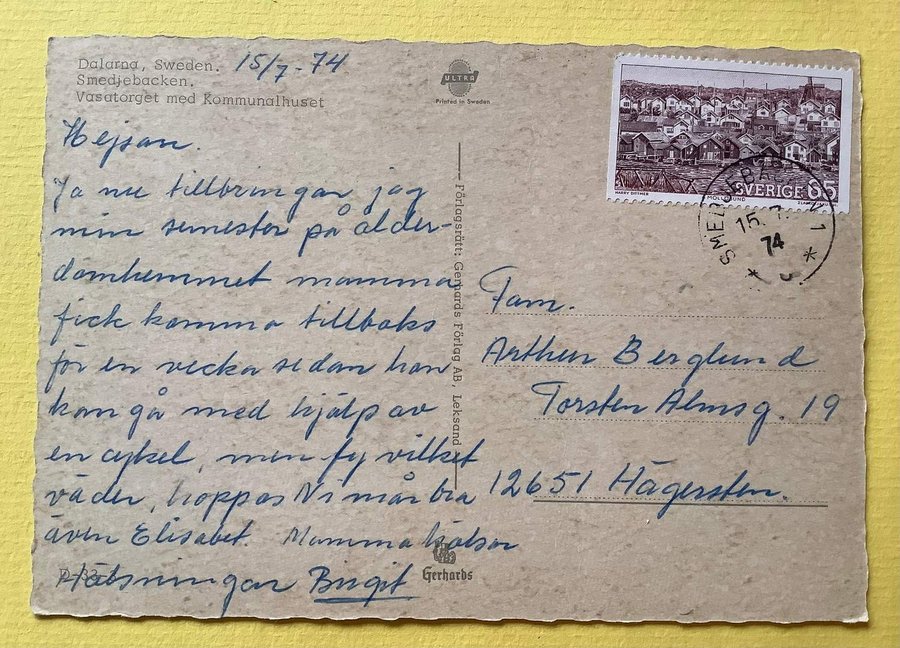 Dalarna, Sweden. 15/7-74
Smedjebacken.
Vasatorget med Kommunalhuset
ULTRA
Printed in Sweden
Hejsan.
Ja nu tillbringar jag
min semester på ålder-
domhemmet mamma
fick komma tillbaks
för en vecka sedan hon
kan gå med hjälp av
en cykel, men fy vilket
väder, hoppas Ni mår bra
även Elisabet. Mamma hälsar
Hälsningar Birgit
Förlagsrätt: Gerhards Förlag AB, Leksand
Gerhards
HARRY DITTMER
MOLLÖSUND
SVERIGE 65
15.7.
74
Fam.
Arthur Berglund
Torsten Almsg. 19
12651 Hägersten.